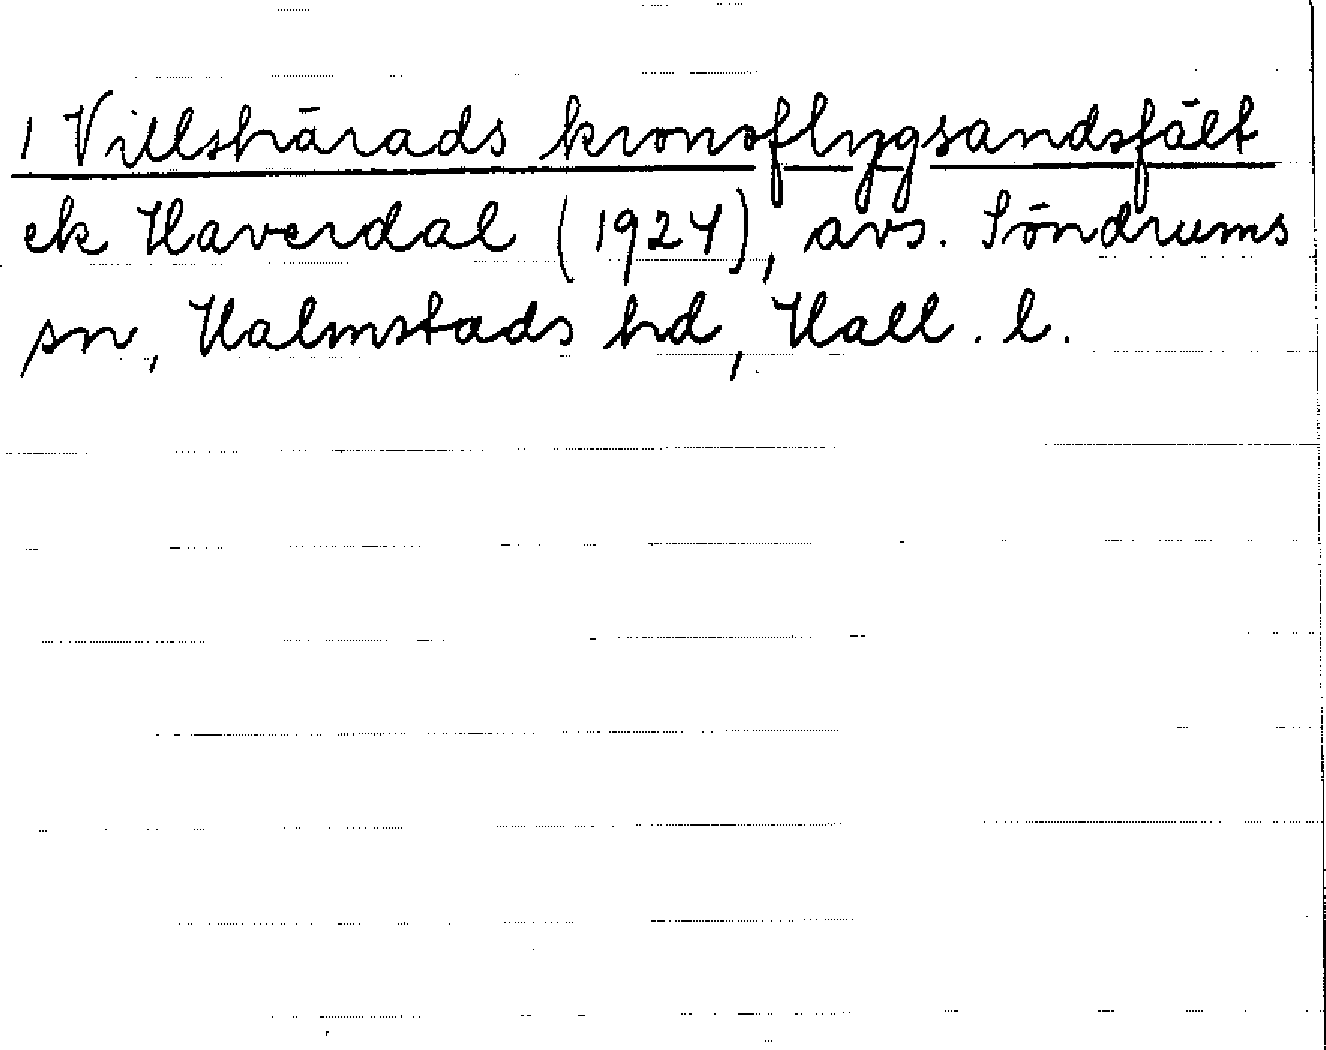 1 Villshärads kronoflygsandsfält
ek Haverdal (1924), avs. Söndrums
sn, Halmstads hd, Hall. l.